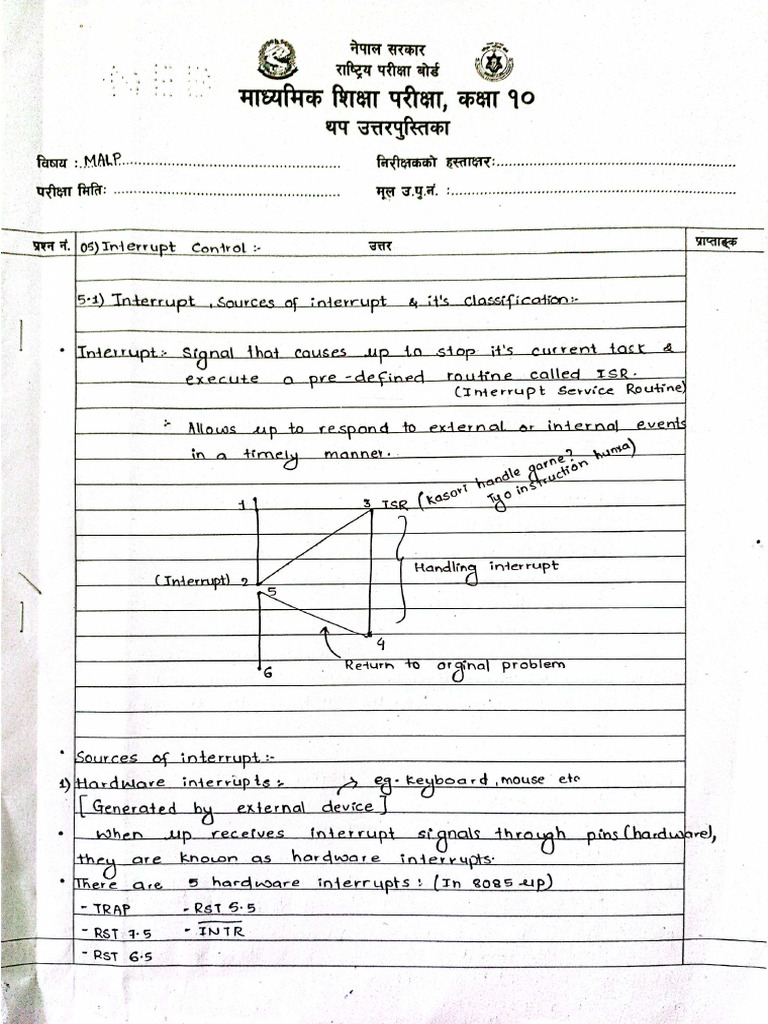 NEB
नेपाल सरकार
राष्ट्रिय परीक्षा बोर्ड
माध्यमिक शिक्षा परीक्षा, कक्षा १०
थप उत्तरपुस्तिका
विषय : MALP
निरीक्षकको हस्ताक्षर:
परीक्षा मिति:
मूल उ.पु.नं. :
प्रश्न नं. 05) Interrupt Control :- उत्तर प्राप्ताङ्क
5.1) Interrupt, Sources of interrupt & it's classification:-
• Interrupt:- Signal that causes up to stop it's current task &
execute a pre-defined routine called ISR.
(Interrupt Service Routine)
:- Allows up to respond to external or internal events
in a timely manner.
1 3 ISR (Kasori handle garne?
Tyo instruction hunxa)
(Interrupt) 2 Handling interrupt
5
4
6 Return to orginal problem
• Sources of interrupt:-
1) Hardware interrupts:- → eg. Keyboard, mouse etc
[Generated by external device]
• When up receives interrupt signals through pins (hardware),
they are known as hardware interrupts.
• There are 5 hardware interrupts: (In 8085 up)
- TRAP - RST 5.5
- RST 7.5 - I̅N̅T̅R̅
- RST 6.5